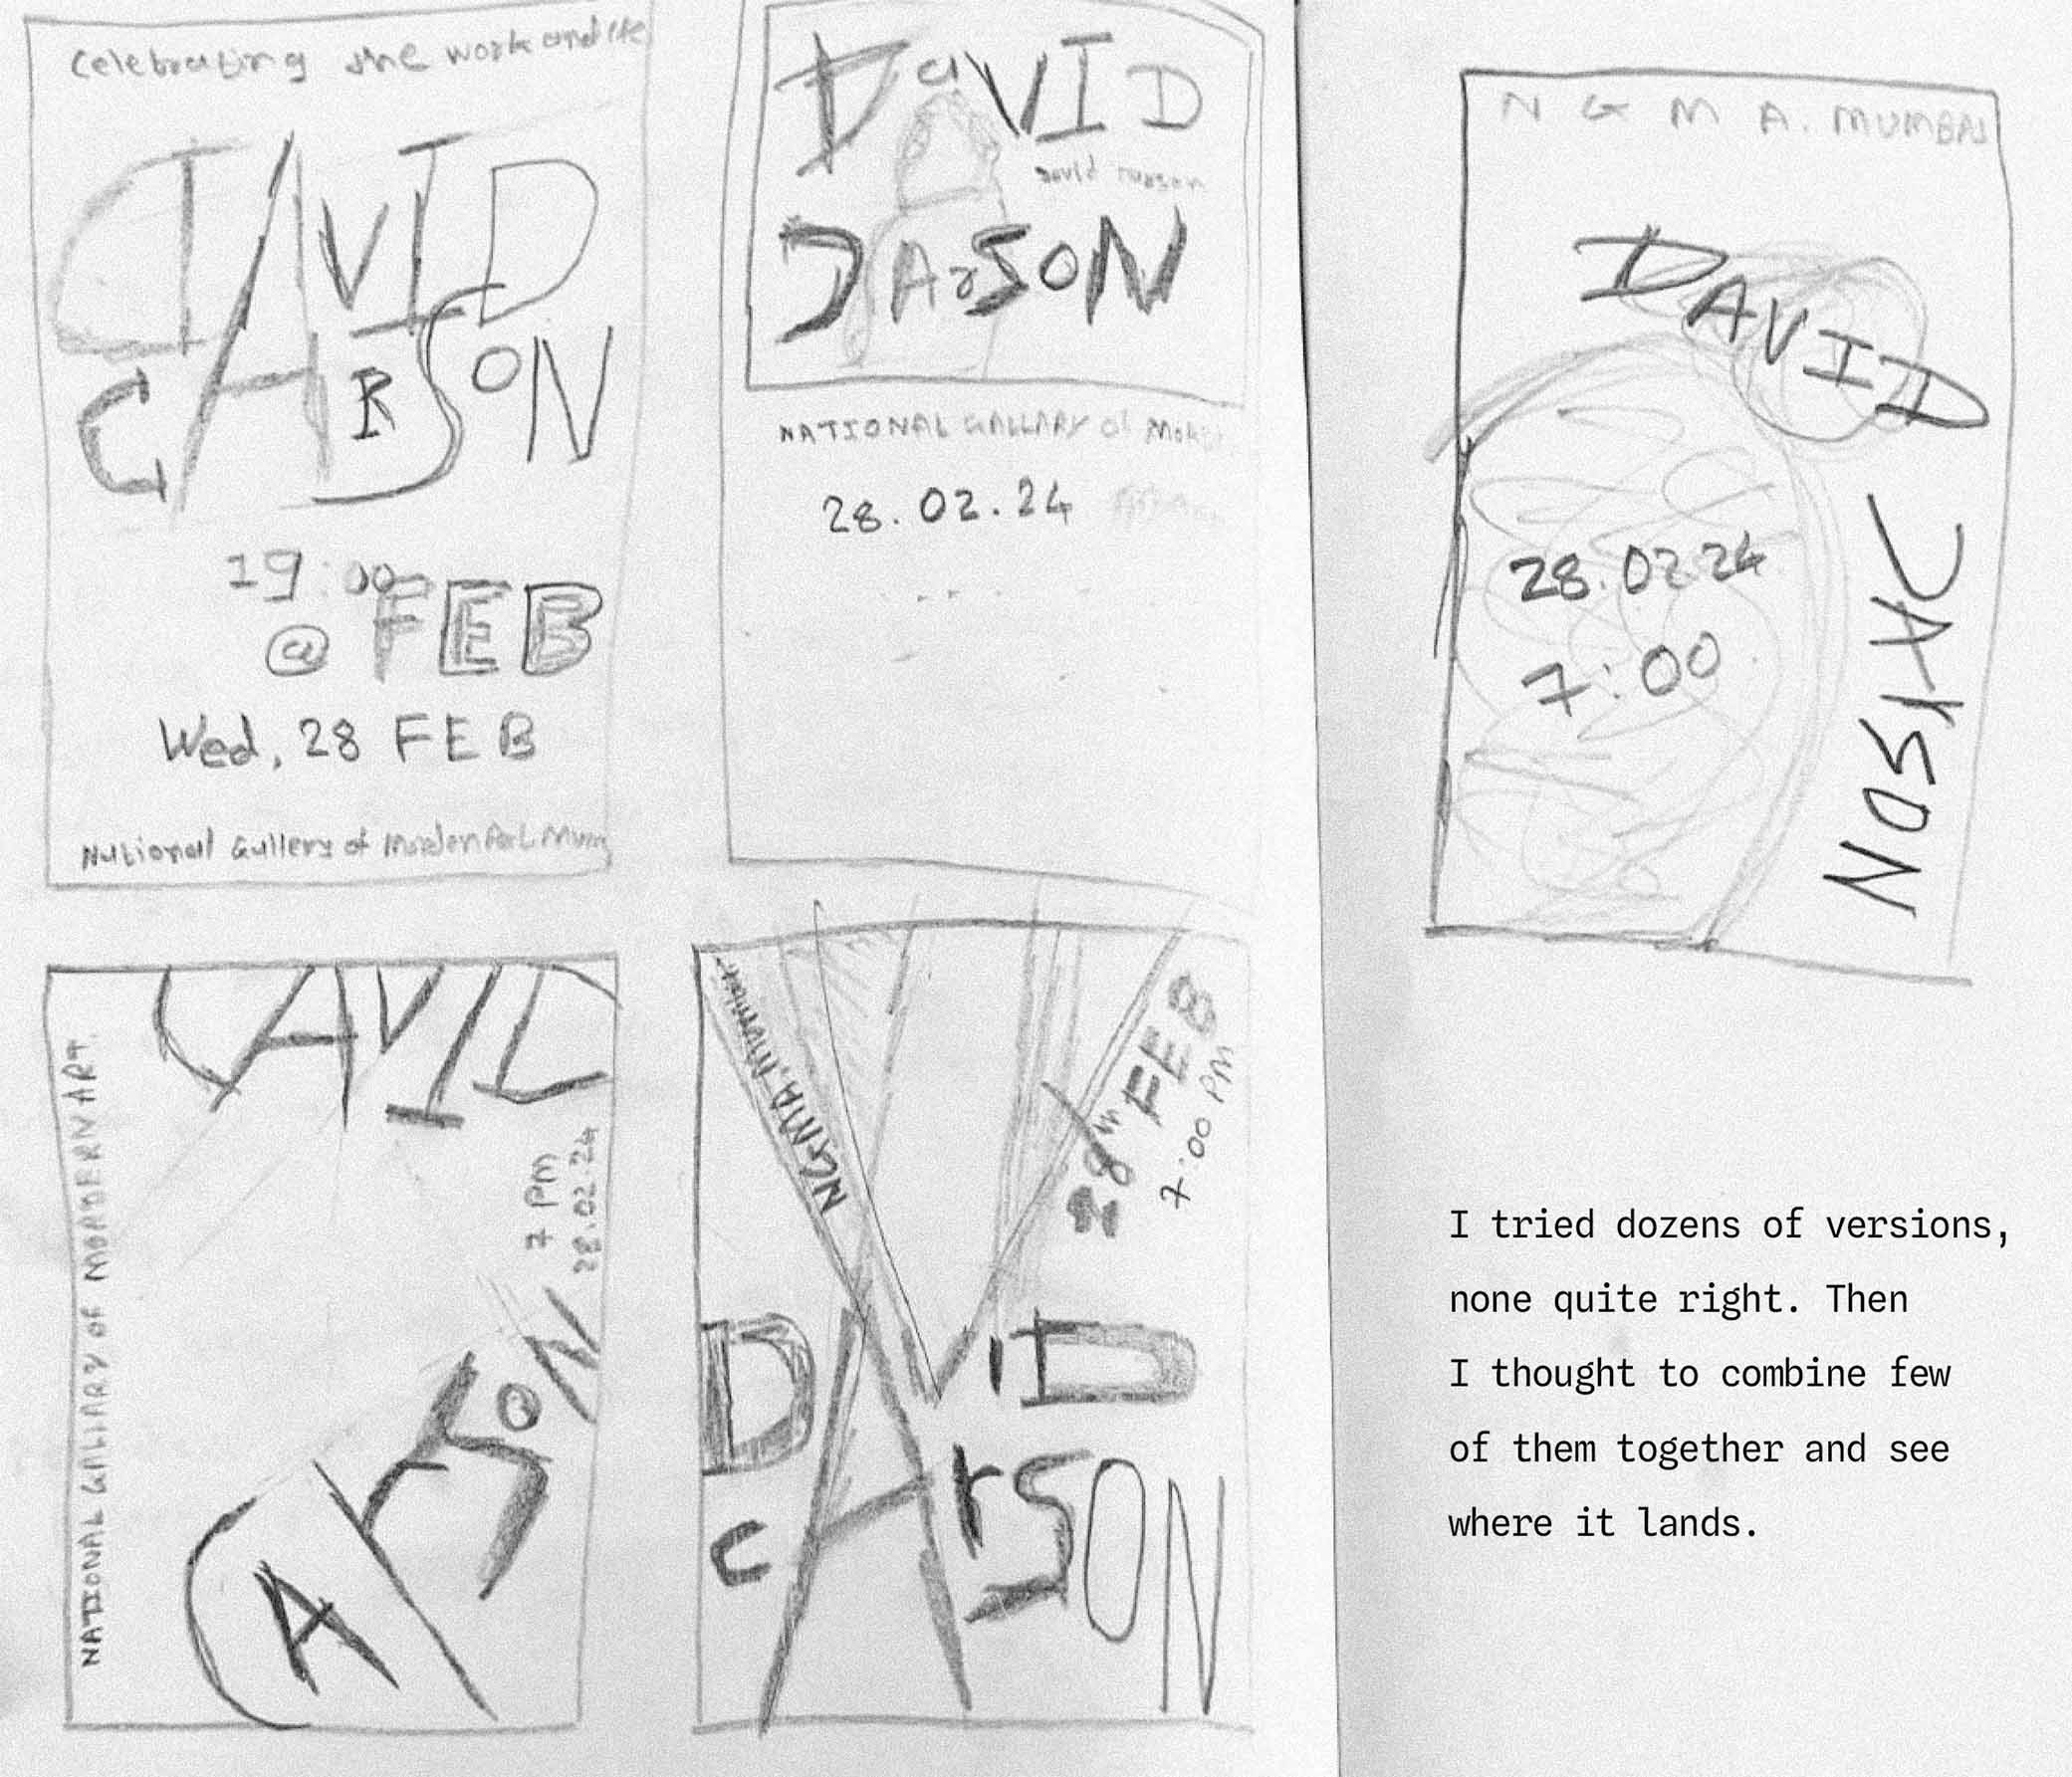 Celebrating the work and
DAVID
CARSON
19:00
@ FEB
Wed, 28 FEB
National Gallery of Morden Art Mum
DaVID
david
CArSON
NATIONAL GALLARY of
28.02.24
N G M A. MUMBAI
DAVID
28.02.24
7:00
CArSON
DAVID
NATIONAL GALLARY OF MORDERN ART.
7 PM
28.02.24
CArSON
NGMA, Mumbai
28th FEB
7:00 PM
DAViD
CArSON
I tried dozens of versions,
none quite right. Then
I thought to combine few
of them together and see
where it lands.